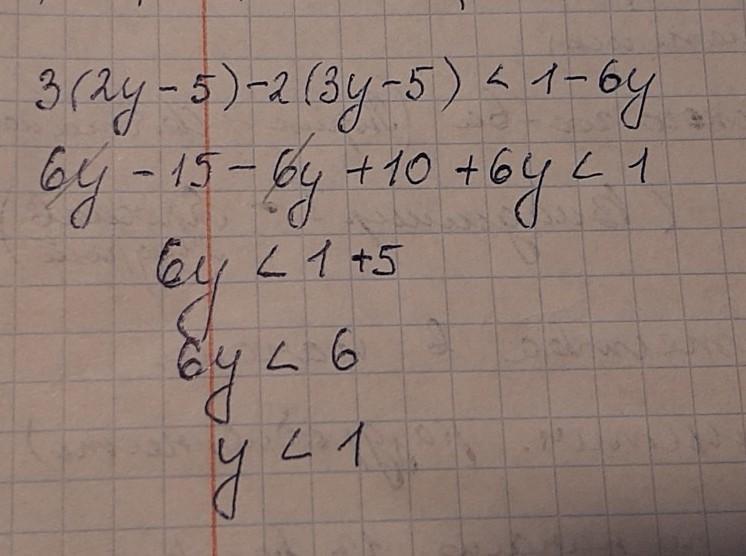 3(2y-5)-2(3y-5) < 1-6y
6y-15-6y+10+6y < 1
6y < 1+5
6y < 6
y < 1